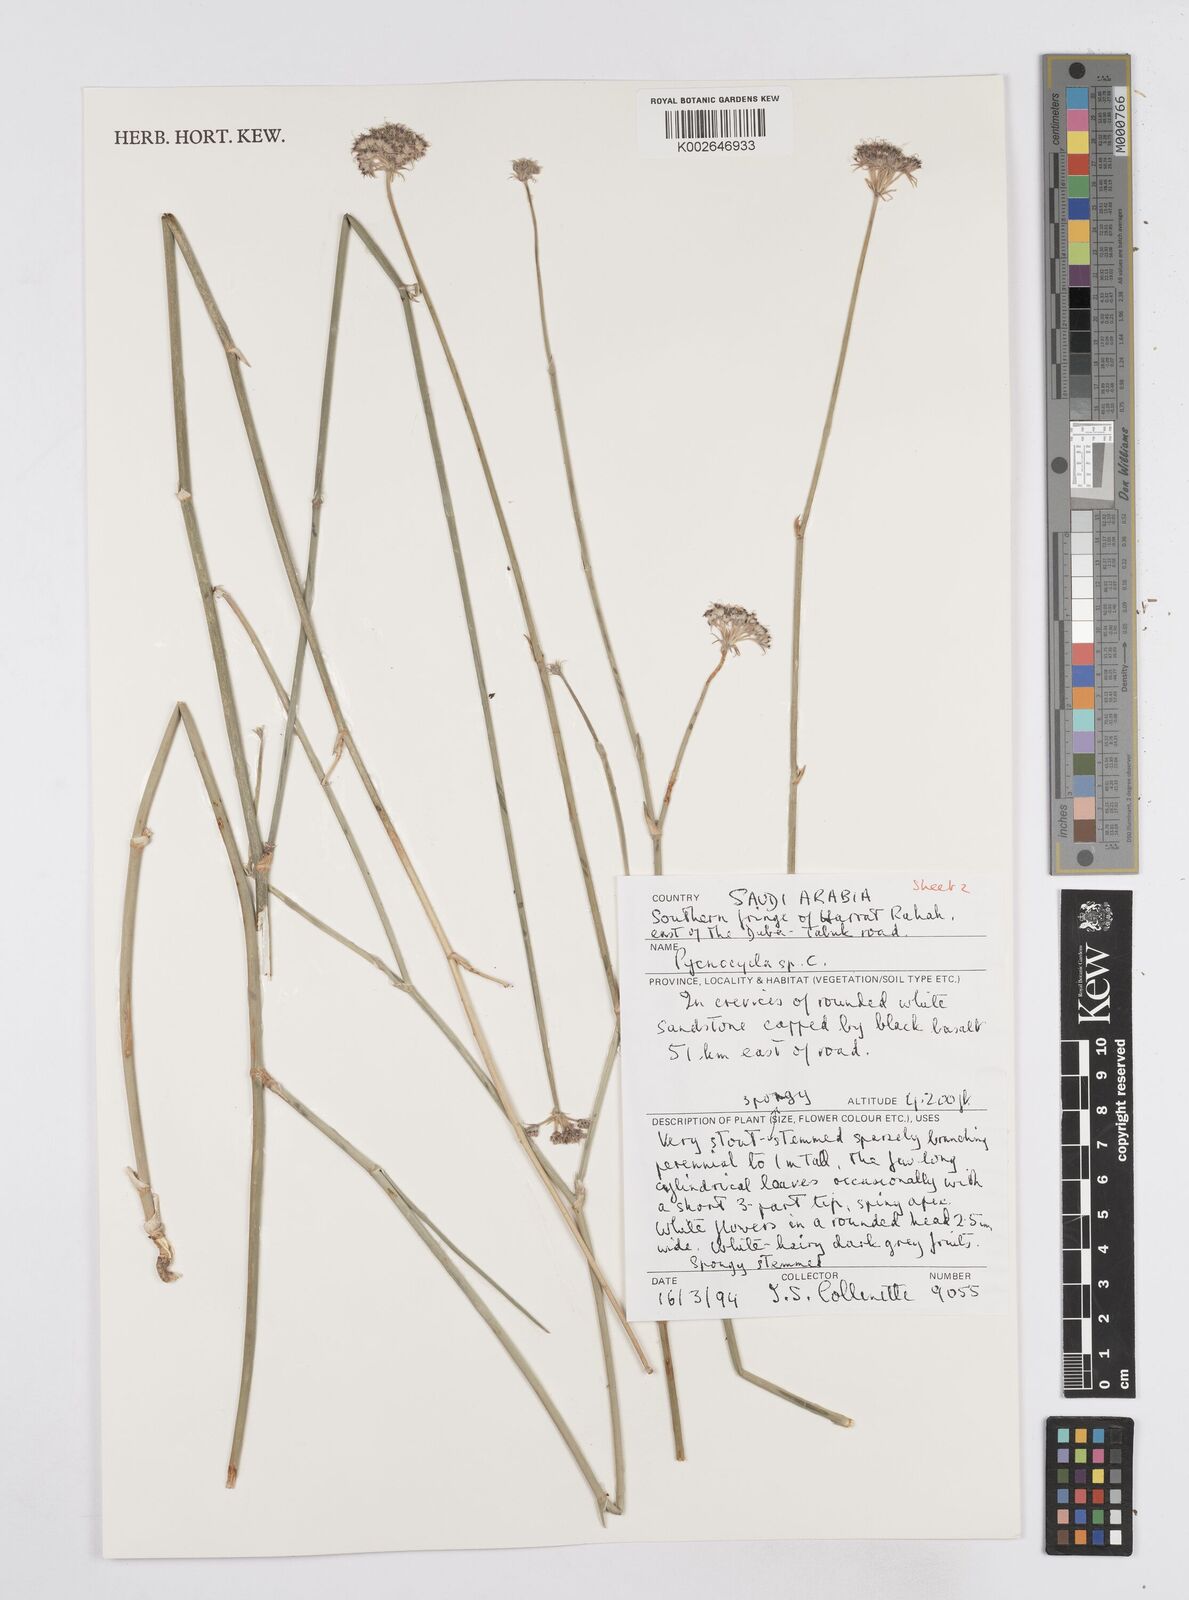 ROYAL BOTANIC GARDENS KEW
K002646933
HERB. HORT. KEW.
Sheet 2
COUNTRY SAUDI ARABIA
Southern fringe of Harrat Rahah,
east of the Duba - Tabuk road.
NAME
Pycnocycla sp. C.
PROVINCE, LOCALITY & HABITAT (VEGETATION/SOIL TYPE ETC.)
In crevices of rounded white
sandstone capped by black basalt
51 km east of road.
spongy ALTITUDE 4,200 ft
DESCRIPTION OF PLANT (SIZE, FLOWER COLOUR ETC.), USES
Very stout-stemmed sparsely branching
perennial to 1 m tall, the few long
cylindrical leaves occasionally with
a short 3-part tip, spiny apex.
White flowers in a rounded head 2.5 cm
wide. White-hairy dark grey fruits.
Spongy stemmed
DATE COLLECTOR NUMBER
16/3/94 I.S. Collenette 9055
centimeters
M000766
Don Williams
Density
inches
Kew
Royal Botanic Gardens
0 1 2 3 4 5 6 7 8 9 10
cm